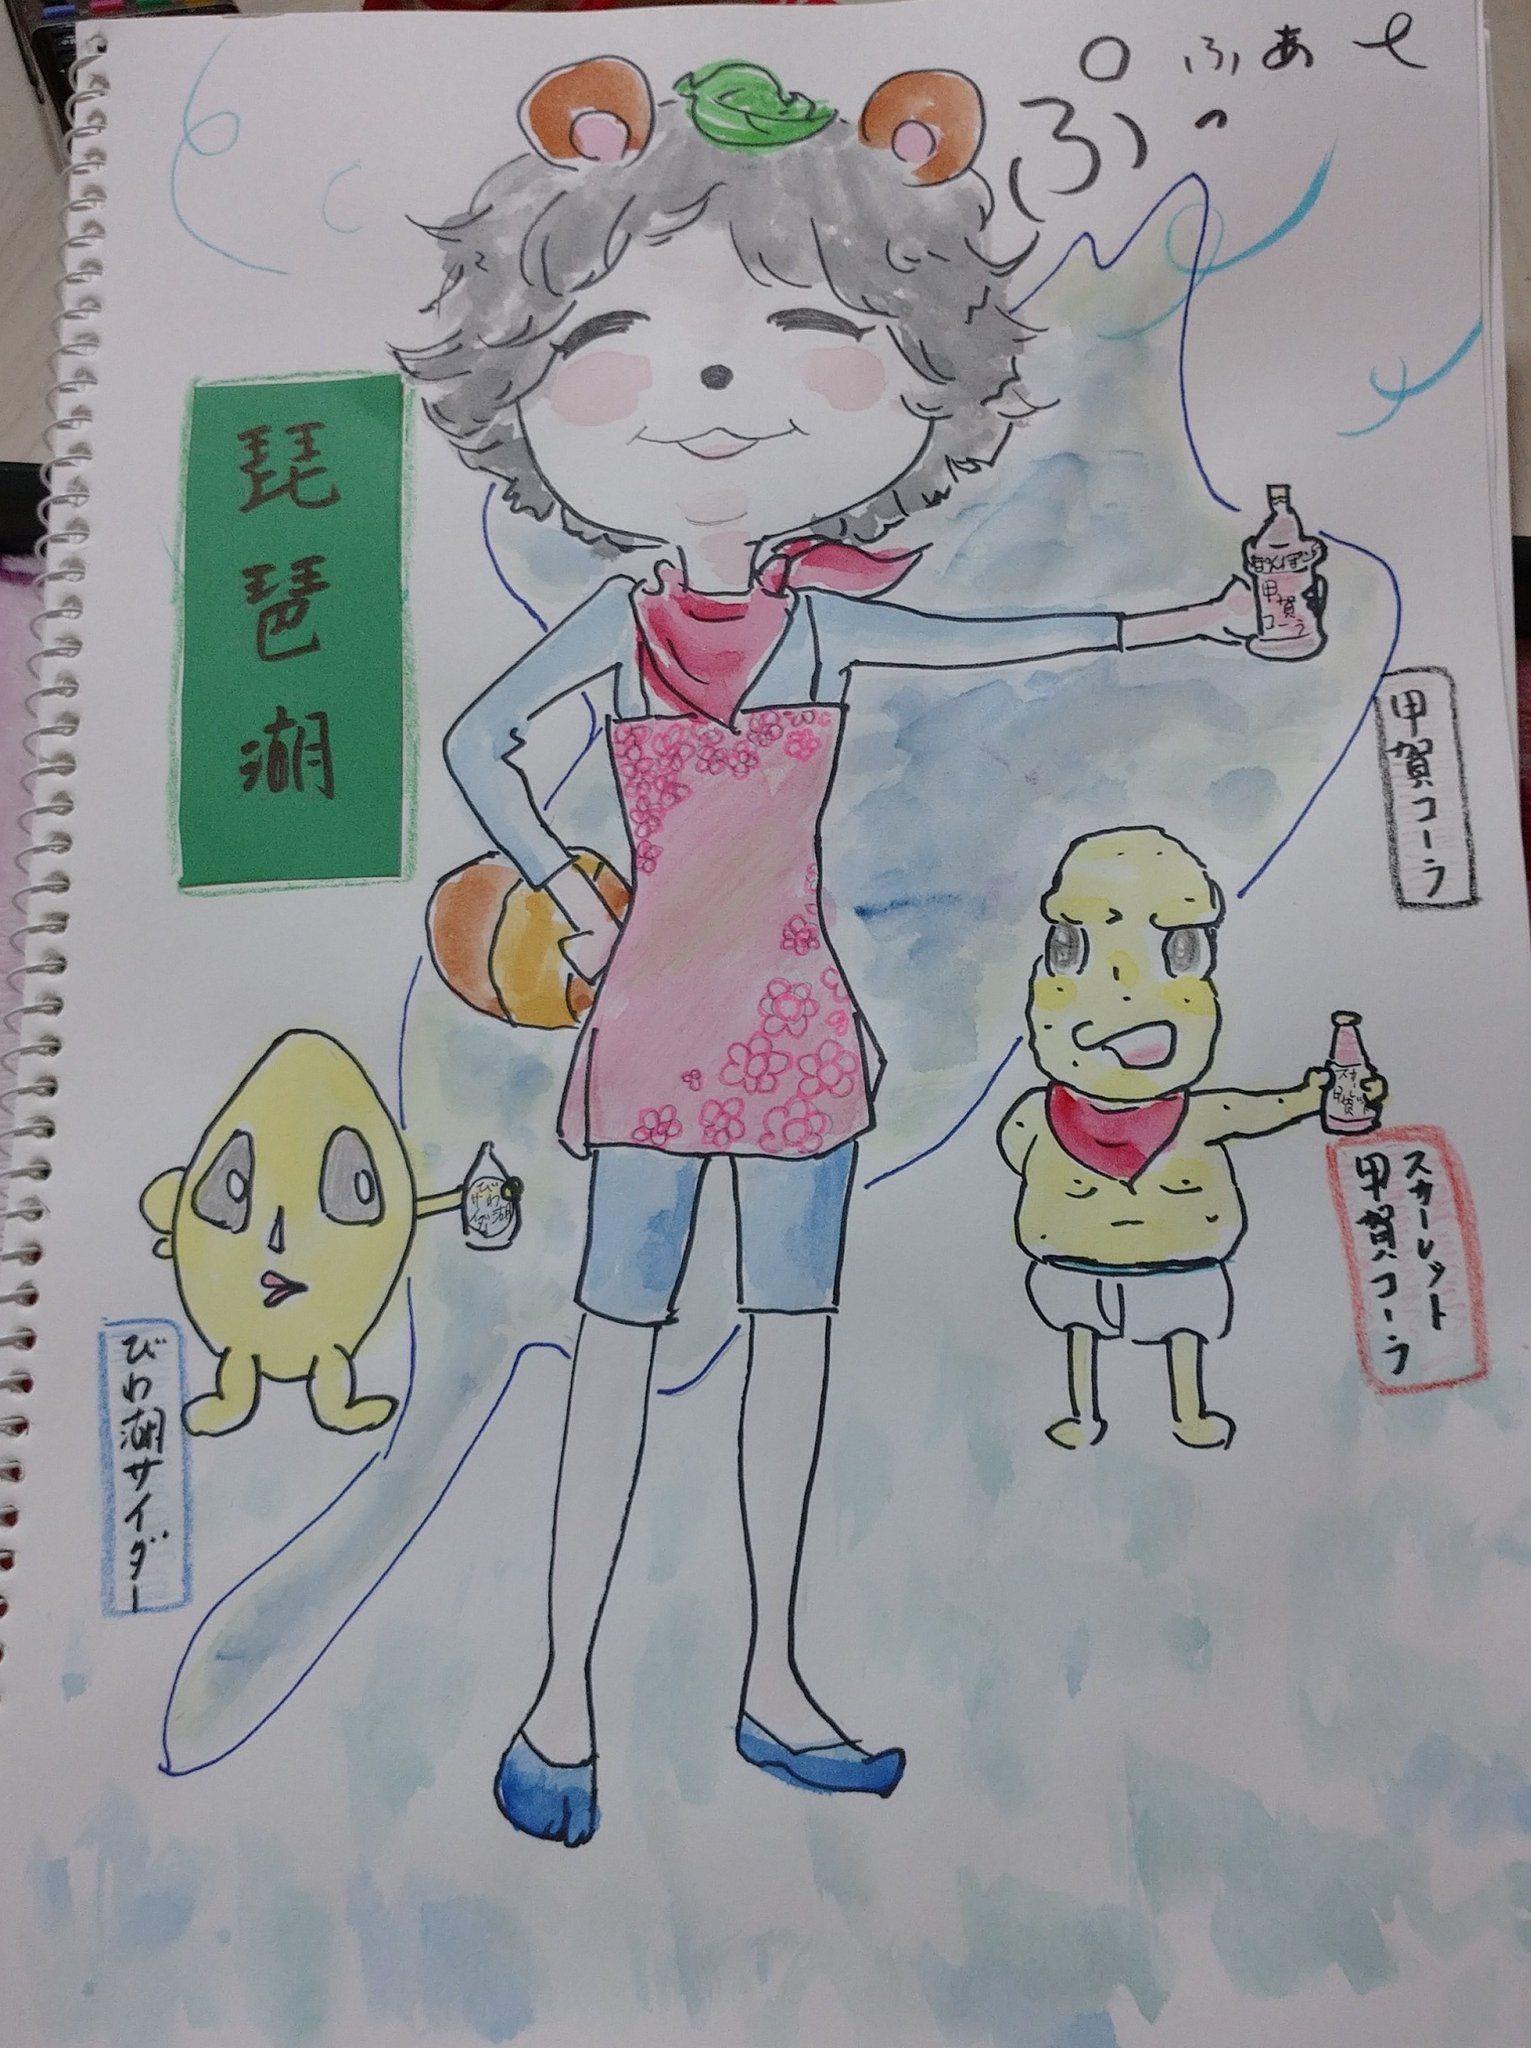 ぷ。ふぁ〜
ぷっ
琵琶湖
甲賀コーラ
甲賀コーラ
スカーレット
甲賀コーラ
びわ湖
サイダー
びわ湖サイダー